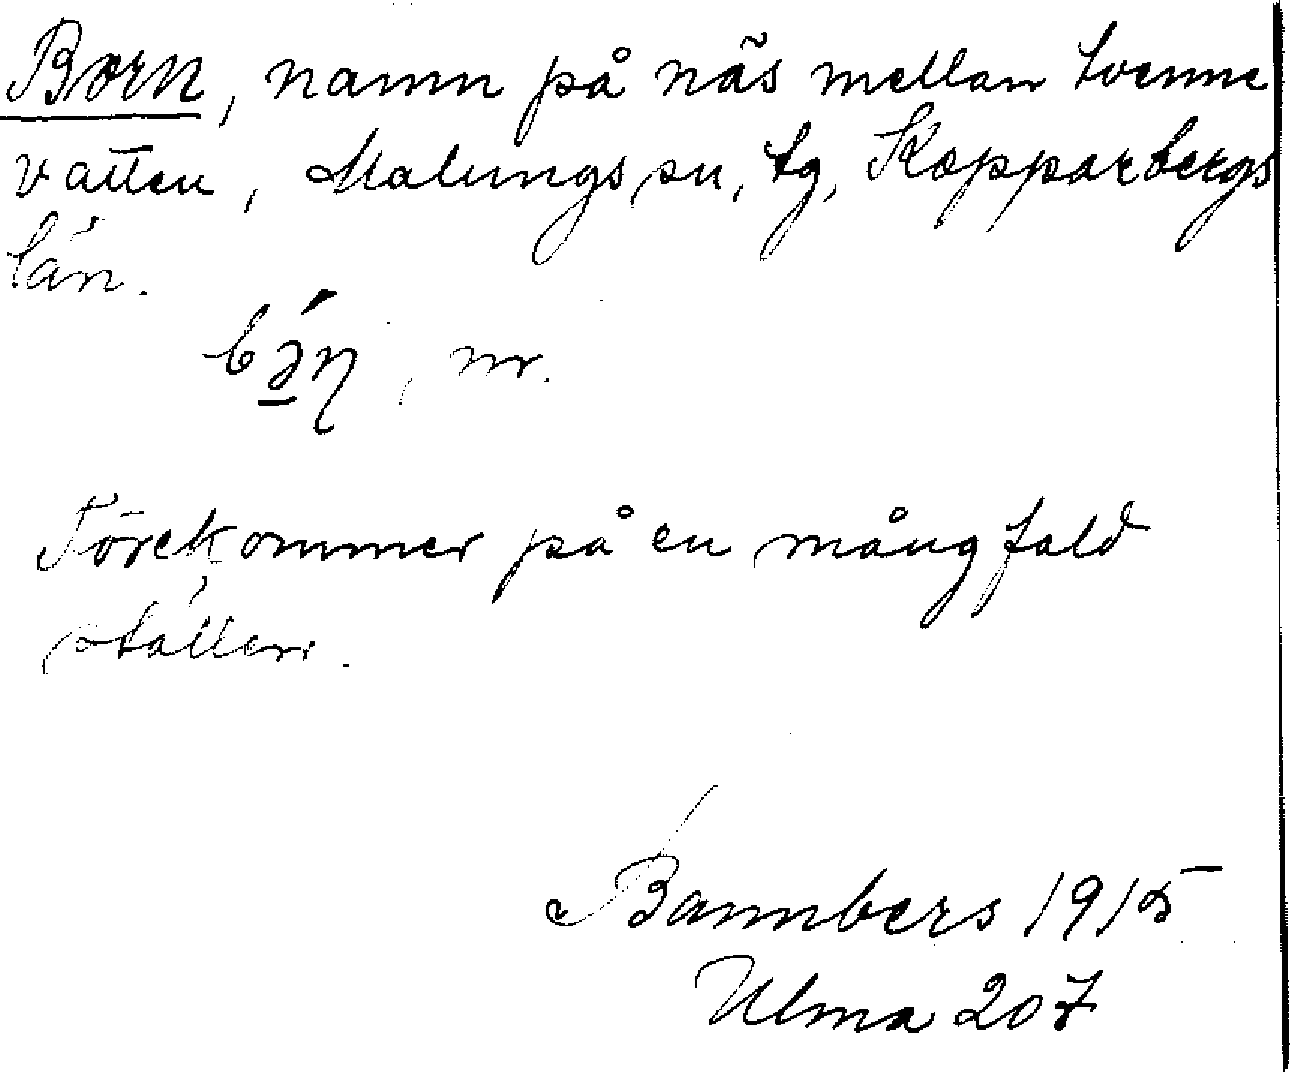 Born, namn på näs mellan tvenne
vatten, Malungs sn, tg, Kopparbergs
län.
nr.
Förekommer på en mångfald
ställen.
Bannbers 1915
Ulma 207